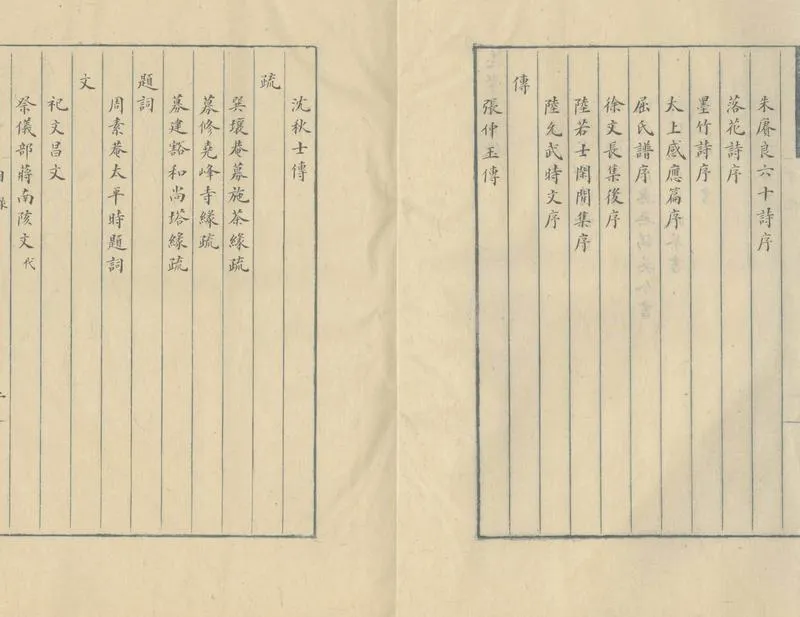 朱賡良六十詩序
落花詩序
墨竹詩序
太上感應篇序
屈氏譜序
徐文長集後序
陸若士閑閒集序
陸允武時文序
傳
張仲玉傳
沈秋士傳
疏
巽壤菴募施茶緣疏
募修堯峰寺緣疏
募建豁和尚塔緣疏
題詞
周素菴太平時題詞
文
祀文昌文
祭儀部蔣南陔文代
目錄